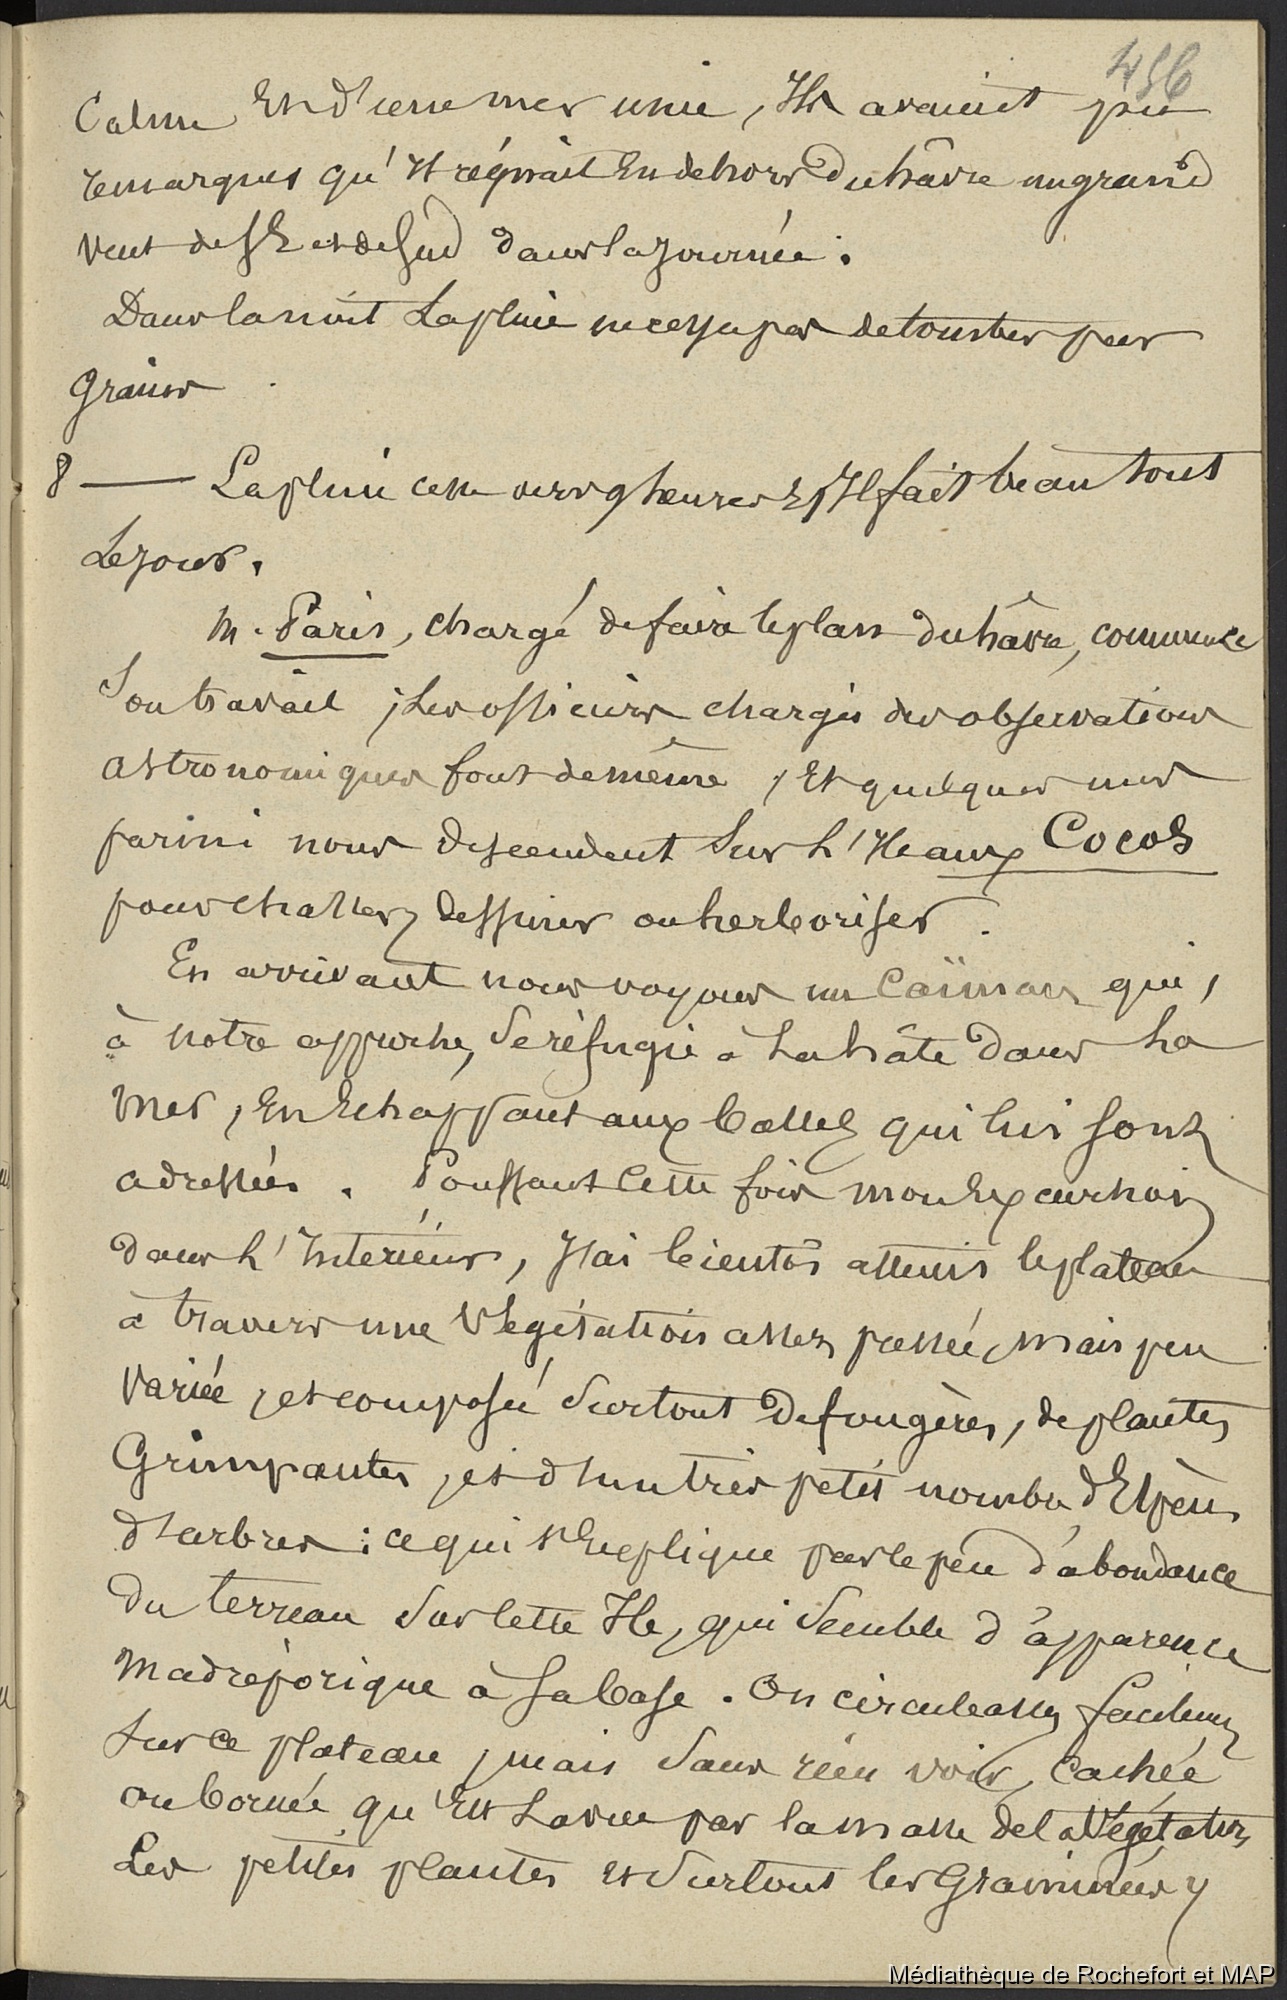 456
Calme Et d'une mer unie, Ils avaient pu
remarquer qu'Il régnait En dehors Du hâvre un grand
vent de SE et de Sud dans la Journée.
Dans la nuit La pluie ne cessa pas de tomber par
Grains
8 — La pluie cesse vers 9 heures Et Il fait beau tout
Le jour.
M. Paris, chargé de faire le plan du hâvre, commence
Son travail ; Les officiers chargés des observations
astronomiques font de même, Et quelques uns
parmi nous descendent Sur L'Ile aux Cocos
pour chasser, dessiner ou herboriser.
En arrivant nous voyons un Caïman qui,
à notre approche, Se réfugie à La hâte Dans La
Mer, En Echappant aux balles qui lui sont
adressées. Poussant Cette fois mon Excursion
dans L'Intérieur, J'ai bientôt atteint le plateau
à travers une Végétation assez passée, mais peu
Variée, et composée Surtout De fougères, de plantes
Grimpantes, et d'un très petit nombre d'Espèces
d'arbres : ce qui s'Explique par le peu d'abondance
Du terreau Sur Cette Ile, qui Semble d'apparence
Madréporique à Sa base. On circule assez facilement
Sur Ce plateau, mais Sans rien voir, Cachée
ou bornée qu'Est La vue par la masse de la Végétation
Les petites plantes et Surtout les Graminées y
Médiathèque de Rochefort et MAP